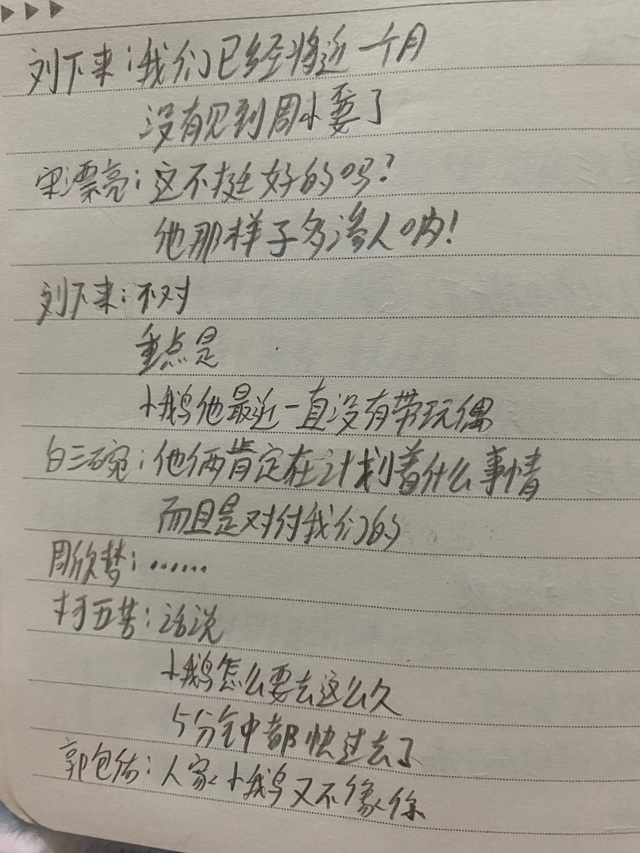 刘下来：我们已经将近一个月
没有见到周小要了
宋漂亮：这不挺好的吗？
他那样子多渗人呐！
刘下来：不对
重点是
小鹅他最近一直没有带玩偶
白三碗：他俩肯定在计划着什么事情
而且是对付我们的
周欣梦：……
村五苦：话说
小鹅怎么要去这么久
5分钟都快过去了
郭包佑：人家小鹅又不像你